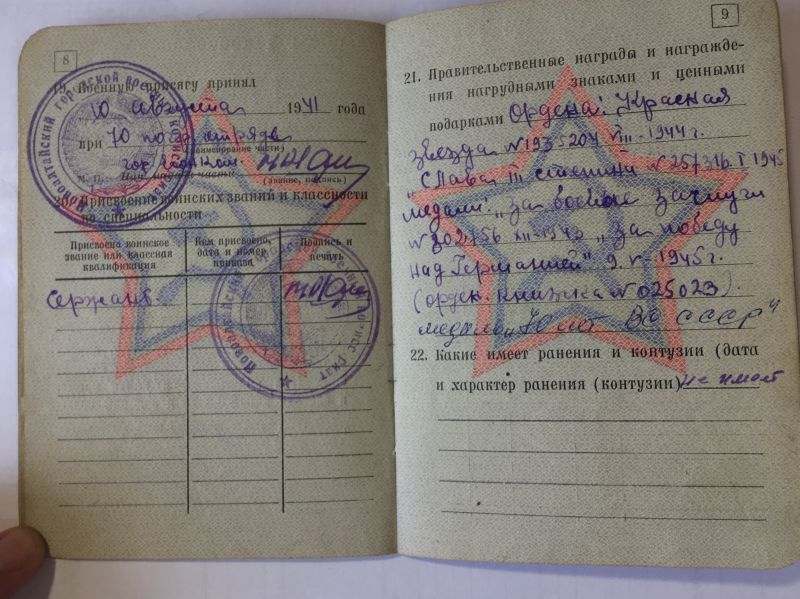 8
19. Военную присягу принял
„10 августа 1941 года
при 10 погр. отряде
(наименование части)
М. П.
(звание, подпись)
20. Присвоение воинских званий и классности
по специальности
Присвоено воинское звание или классная квалификация
Кем присвоено, дата и номер приказа
Подпись и печать
Сержант
9
21. Правительственные награды и награжде-
ния нагрудными знаками и ценными
подарками Ордена: Красная
звезда № 1935204 VIII-1944 г.
„Слава III степени № 257316. I 1945
медали: „За боевые заслуги
№ 302756 XII-1943 „За победу
над Германией" 9. V-1945 г.
(орден. книжка № 025023).
медаль „70 лет ВС СССР"
22. Какие имеет ранения и контузии (дата
и характер ранения (контузии) не имеет